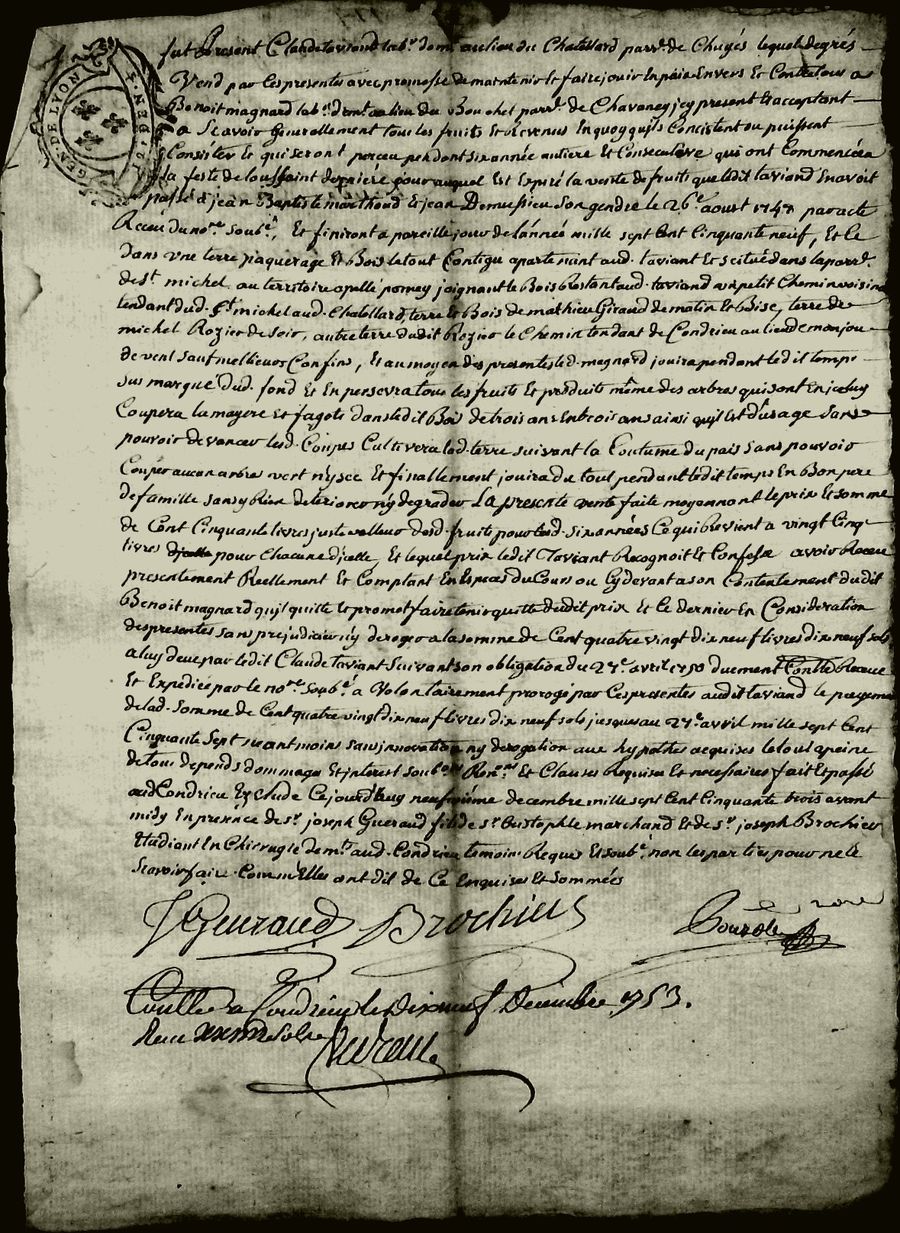 GEN·DE·LYON
fut Present Claude taviand lab.r dem.t au lieu du Chatellard parr.e de Chuyés lequel degrés
Vend par Ces presentes avec promesse de maintenir et faire jouir En paix Envers Et Contre tous a
Benoit magnard lab.r dem.t au lieu du Bouchet parr.e de Chavaney jcy present Et acceptant
a Scavoir generallement tous les fruits Et Revenus En quoy qu'ils Concistent ou puissent
Consister Et qui seront perceu pendant six année entiere Et Consecutive qui ont Commencéea
la feste de toussaint derniere jour auquel Est Expiré la vente de fruits que ledit taviand En avoit
passé a jean Baptiste marthoud Et jean Demusieu Son gendre le 26.e aoust 1747 par acte
Receu du no.re soub.né, Et finiront a pareille jour de lannéé mille sept Cent Cinquante neuf, Et Ce
Dans vne terre paquerage Et Bois le tout Contigu apartenant aud. taviant Et scitué dans la parr.e
de s.t michel au territoire apellé pomey joignant le Bois Restant aud. taviand un petit Chemin voisin
tendant dud. S.t michel aud. Chatellard, terre Et Bois de mathieu Giraud de matin Et Bise, terre de
michel Rozier de soir, autre terre dudit Rozier le Chemin tendant de Condrieu au lieu de monjou
de vent sauf mellieurs Confins, Et au moyen des presentes led. magnard jouira pendant ledit temps
sus marqué dud. fond Et En persevra tous les fruits Et produits même des arbres qui sont En jceluy
Coupera la mayere Et fagots dans ledit Bois de trois ans En trois ans ainsi qu'il Est d'usage Sans
pouvoir devancer lesd. Coupes Cultivera lad. terre suivant la Coutume du pais sans pouvoir
Couper aucun arbre vert ny sec Et finallement jouira du tout pendant ledit temps En Bon pere
de famille sans y Rien deteriorer ny degrader La presente vente faite moyennant le prix Et somme
de Cent Cinquante livres juste valleur desd. fruits pour lesd. six années Ce qui Revient a vingt Cinq
livres pour Chacune d'jcelle, Et lequel prix ledit Taviant Recognoit Et Confesse avoir Receu
presentement Reellement Et Comptant En Espece du Cours ou Cy devant a son Contentement dudit
Benoit magnard qu'jl quitte Et promet faire tenir quitte dudit prix Et Ce dernier En Consideration
des presentes sans prejudicier ny deroger a la somme de Cent quatre vingt dix neuf livres dix neuf sols
a luy deue par ledit Claude taviant Suivant son obligation du 27.e avril 1750 duement Contlé Receue
Et Expediée par le no.re Soub.né a Volontairement prorogé par Ces presentes audit taviand le payement
de lad. Somme de Cent quatre vingt dix neuf livres dix neuf sols jusques au 27.e avril mille sept Cent
Cinquante Sept neantmoins sans innovation ny derogation aux hypotes acquises le tout a peine
de tous depends dommages Et interest soub.ons Ren.ons Et Clauses Requises Et necessaires fait Et passé
aud Condrieu Etude Ce jourd'huy neufvieme decembre mille sept Cent Cinquante trois avant
midy En presence de s.r joseph Gueraud fils de s.r Cristophle marchand Et de s.r joseph Brochier
Etudiant En Chirurgie dem.t aud. Condrieu temoins Requis Et soub.né, non les parties pour ne le
Scavoir faire Comme Elles ont dit de Ce Enquises Et sommées
JGueraud Brochier
Contllé a Condrieu le Dix neuf Decembre 1753.